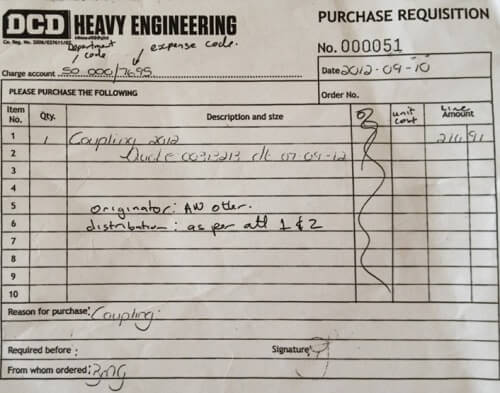 DCD HEAVY ENGINEERING
PURCHASE REQUISITION
No. 000051
Department code
expense code.
Charge account 50 000/7695
Date 2012-09-10
PLEASE PURCHASE THE FOLLOWING
Order No.
Item No. Qty. Description and size unit cost Line Amount
1 1 Coupling 2012 210,91
2 Quote 0033213 dt 07-09-12
3
4
5 originator: AN other.
6 distribution: as per att 1 & 2
7
8
9
10
Reason for purchase: Coupling.
Required before: Signature:
From whom ordered: BMG